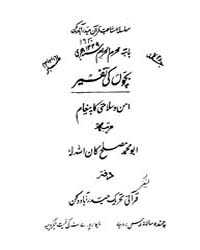 سلسلہ اشاعت قرآنی حیدرآباد دکن
بابتہ محرم الحرام ۱۳۴۹ ہجری
بچوں کی تفسیر
امن و سلامتی کا پیغام
مرتبہ
ابو محمد مصلح کان اللہ لہٗ
دفتر
قرآنی تحریک حیدرآباد دکن
چندہ سالانہ